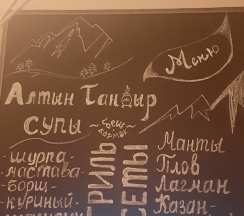 Меню
Алтын Тандыр
супы
- шурпа
- мастава -
- борщ -
- куриный
ГРИЛЬ
СЕТЫ
Манты
Плов
Лагман
Казан-